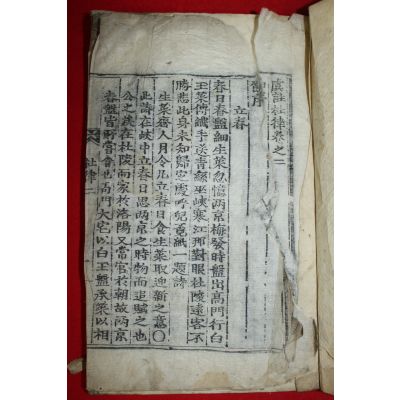 虞註杜律卷之二
節序
立春
春日春盤細生菜忽憶兩京梅發時盤出高門行白
玉菜傳纖手送青絲巫峽寒江那對眼杜陵遠客不
勝悲此身未知歸定處呼兒覓紙一題詩
生菜齊人月令凡立春日食生菜取迎新之意〇
此詩在峽中立春日思兩京之時物而追賦之也
公之族在杜陵而家於洛陽又嘗官於朝故兩京
春盤皆所嘗食也高門大宅以白玉盤承菜以相
杜律二